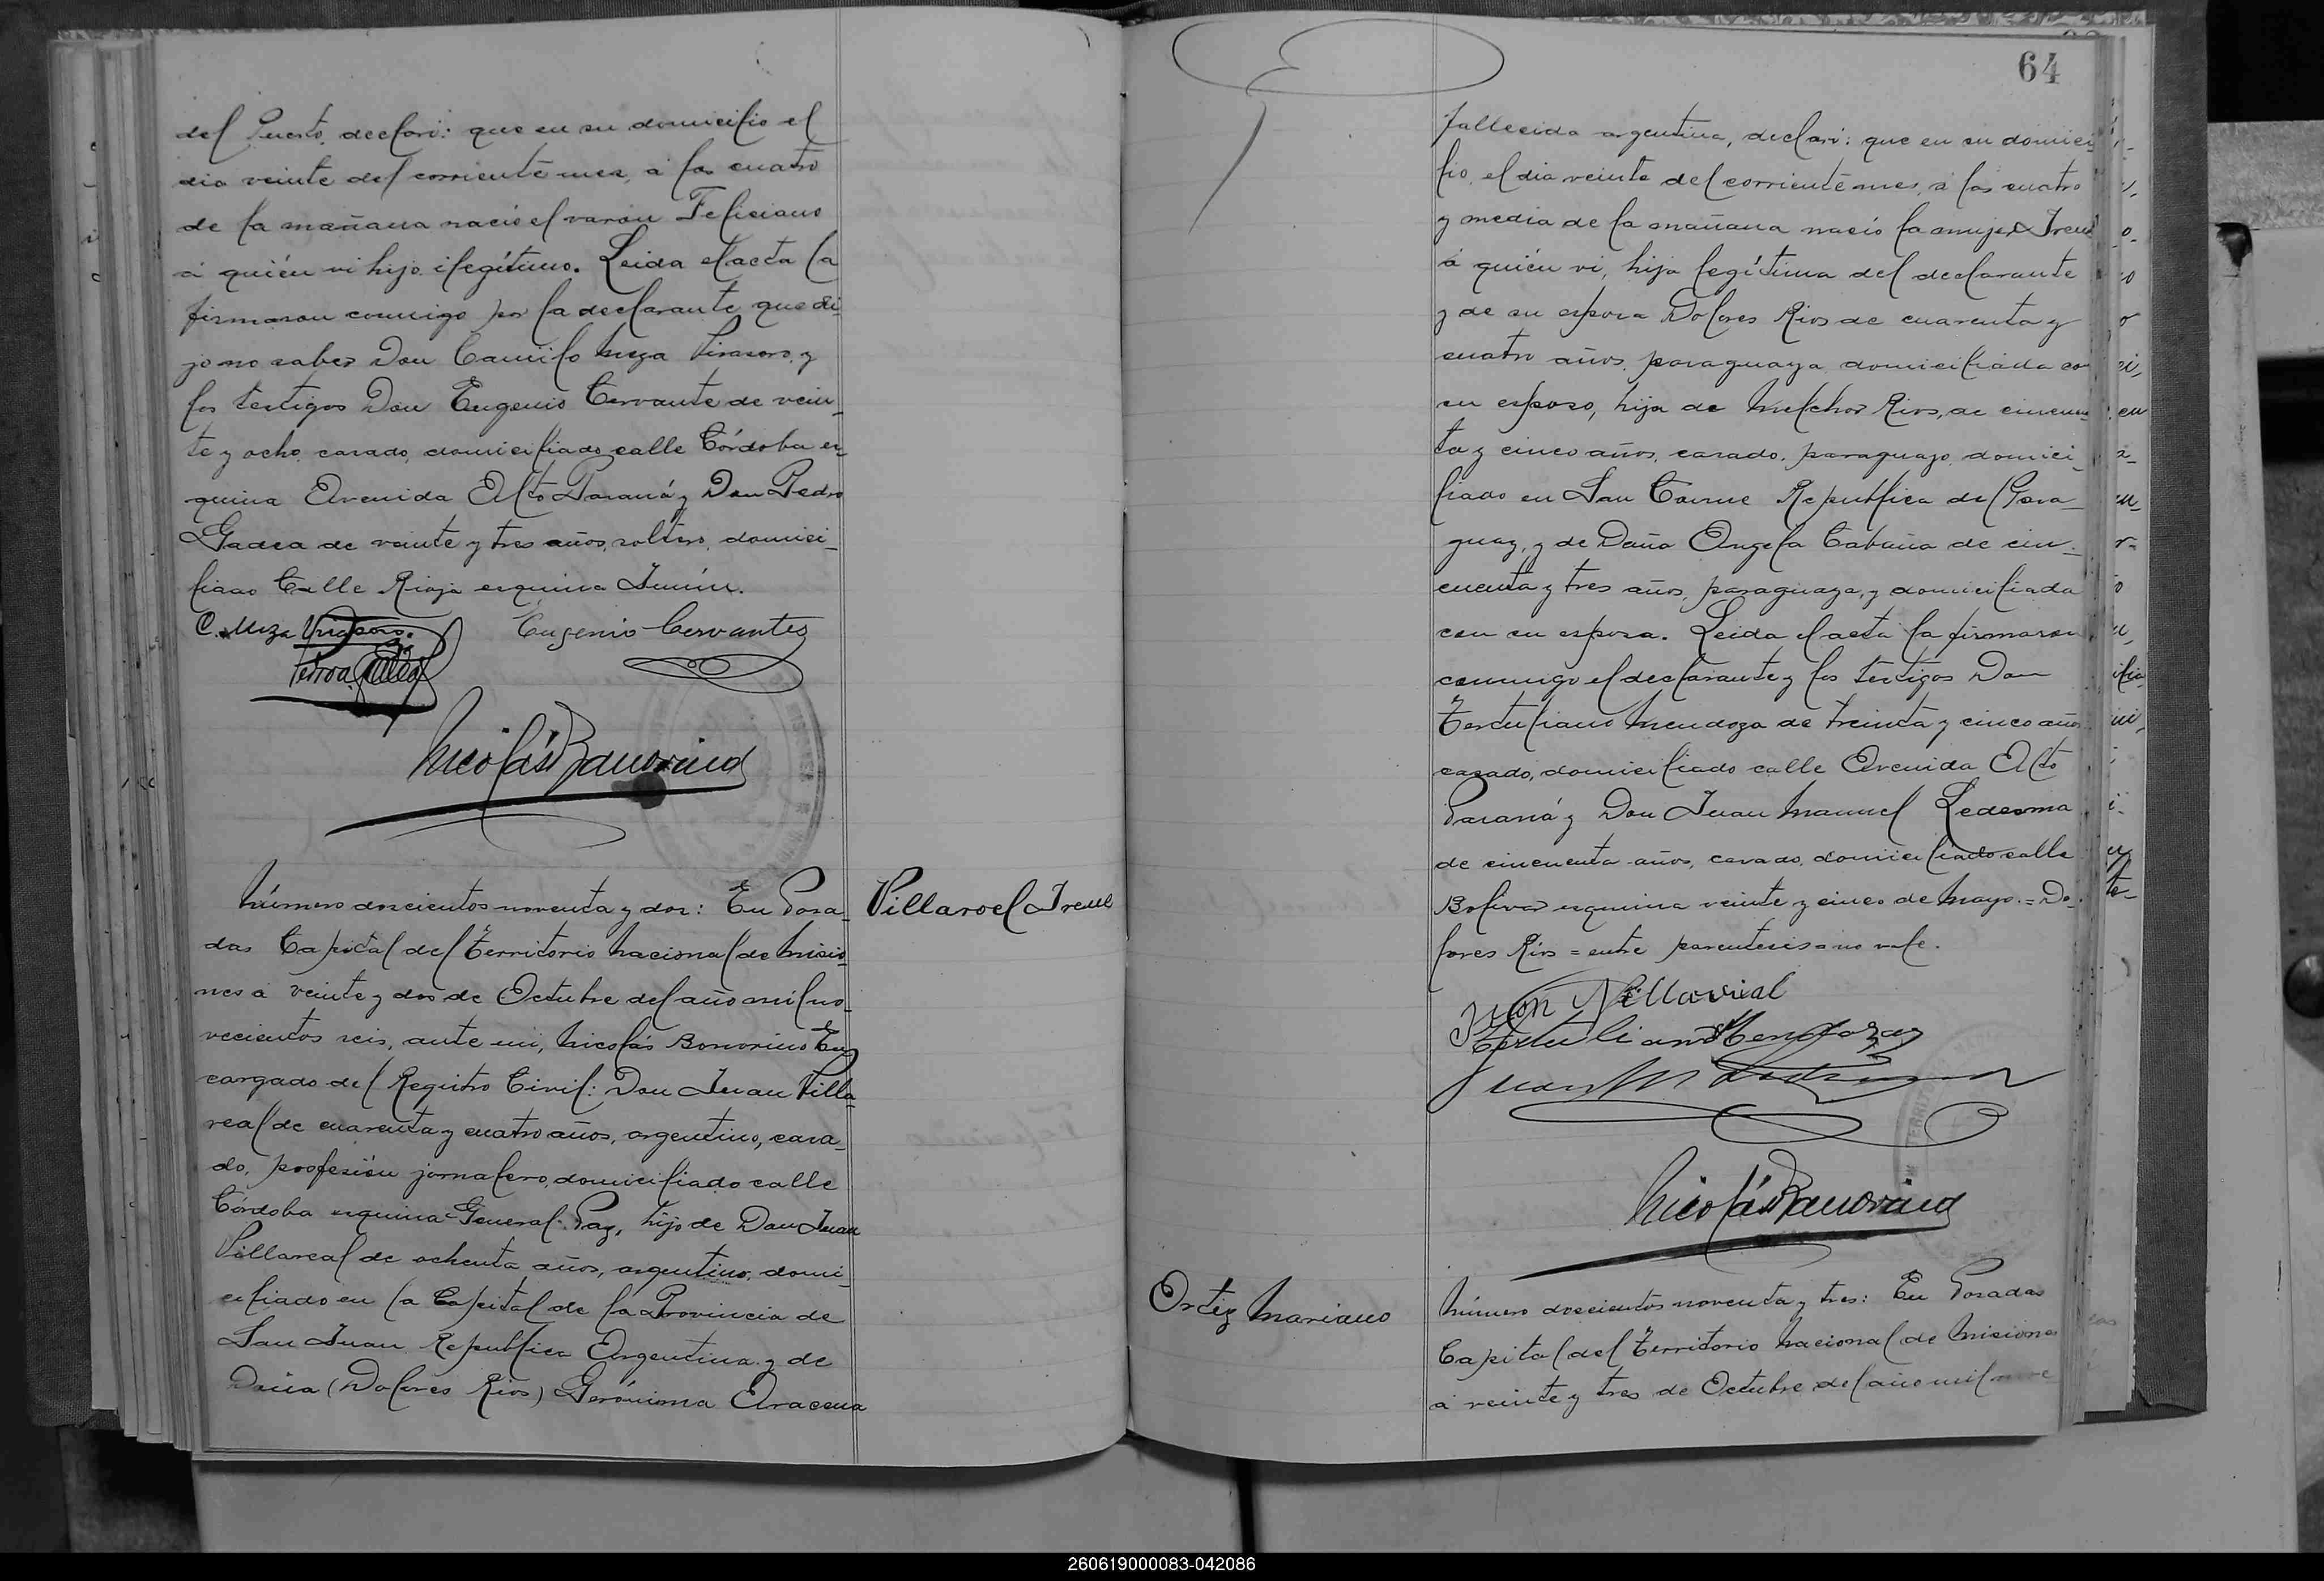 del Puerto, declaró: que en su domicilio el
dia veinte del corriente mes, á las cuatro
de la mañana nació el varón Feliciano
á quién vi hijo ilegítimo. Leida el acta la
firmaron conmigo por la declarante que di-
jo no saber Don Camilo Meza Virasoro, y
los testigos Don Eugenio Cervante de vein-
te y ocho, casado, domiciliado calle Córdoba es-
quina Avenida Alto Paraná y Don Pedro
Gadea de veinte y tres años, soltero, domici-
liado Calle Rioja esquina Junín.
C. Meza Virasoro. Eugenio Cervantes
Pedro Gadea
Nicolás Bonorino
Número doscientos noventa y dos: En Posa-
das Capital del Territorio Nacional de Misio-
nes á veinte y dos de Octubre del año mil no-
vecientos seis, ante mi, Nicolás Bonorino En-
cargado del Registro Civil: Don Juan Villa-
real de cuarenta y cuatro años, argentino, casa-
do, profesión jornalero, domiciliado calle
Córdoba esquina General Paz, hijo de Don Juan
Villareal de ochenta años, argentino, domi-
ciliado en la Capital de la Provincia de
San Juan Republica Argentina y de
Doña (Dolores Rios) Gerónima Aracena
Villaroel Irene
64
fallecida argentina, declaró: que en su domici-
lio, el dia veinte del corriente mes, á las cuatro
y media de la mañana nació la mujer Irene
á quién vi, hija legítima del declarante
y de su esposa Dolores Rios de cuarenta y
cuatro años, paraguaya domiciliada con
su esposo, hija de Melchor Rios, de cincuen-
ta y cinco años, casado, paraguayo, domici-
liado en San Cosme Republica del Para-
guay, y de Doña Angela Cabaña de cin-
cuenta y tres años, paraguaya, y domiciliada
con su esposo. Leida el acta la firmaron
conmigo el declarante y los testigos Don
Tertuliano Mendoza de treinta y cinco años
casado, domiciliado calle Avenida Alto
Paraná y Don Juan Manuel Ledesma
de cincuenta años, casado, domiciliado calle
Bolivar esquina veinte y cinco de Mayo. = Do-
lores Rios = entre parentesis = no vale.
Juan Villavrial
Tertuliano Mendoza
Juan M Ledesma
Nicolás Bonorino
Ortiz Mariano
Número doscientos noventa y tres: En Posadas
Capital del Territorio Nacional de Misiones
á veinte y tres de Octubre del año mil nove
260619000083-042086